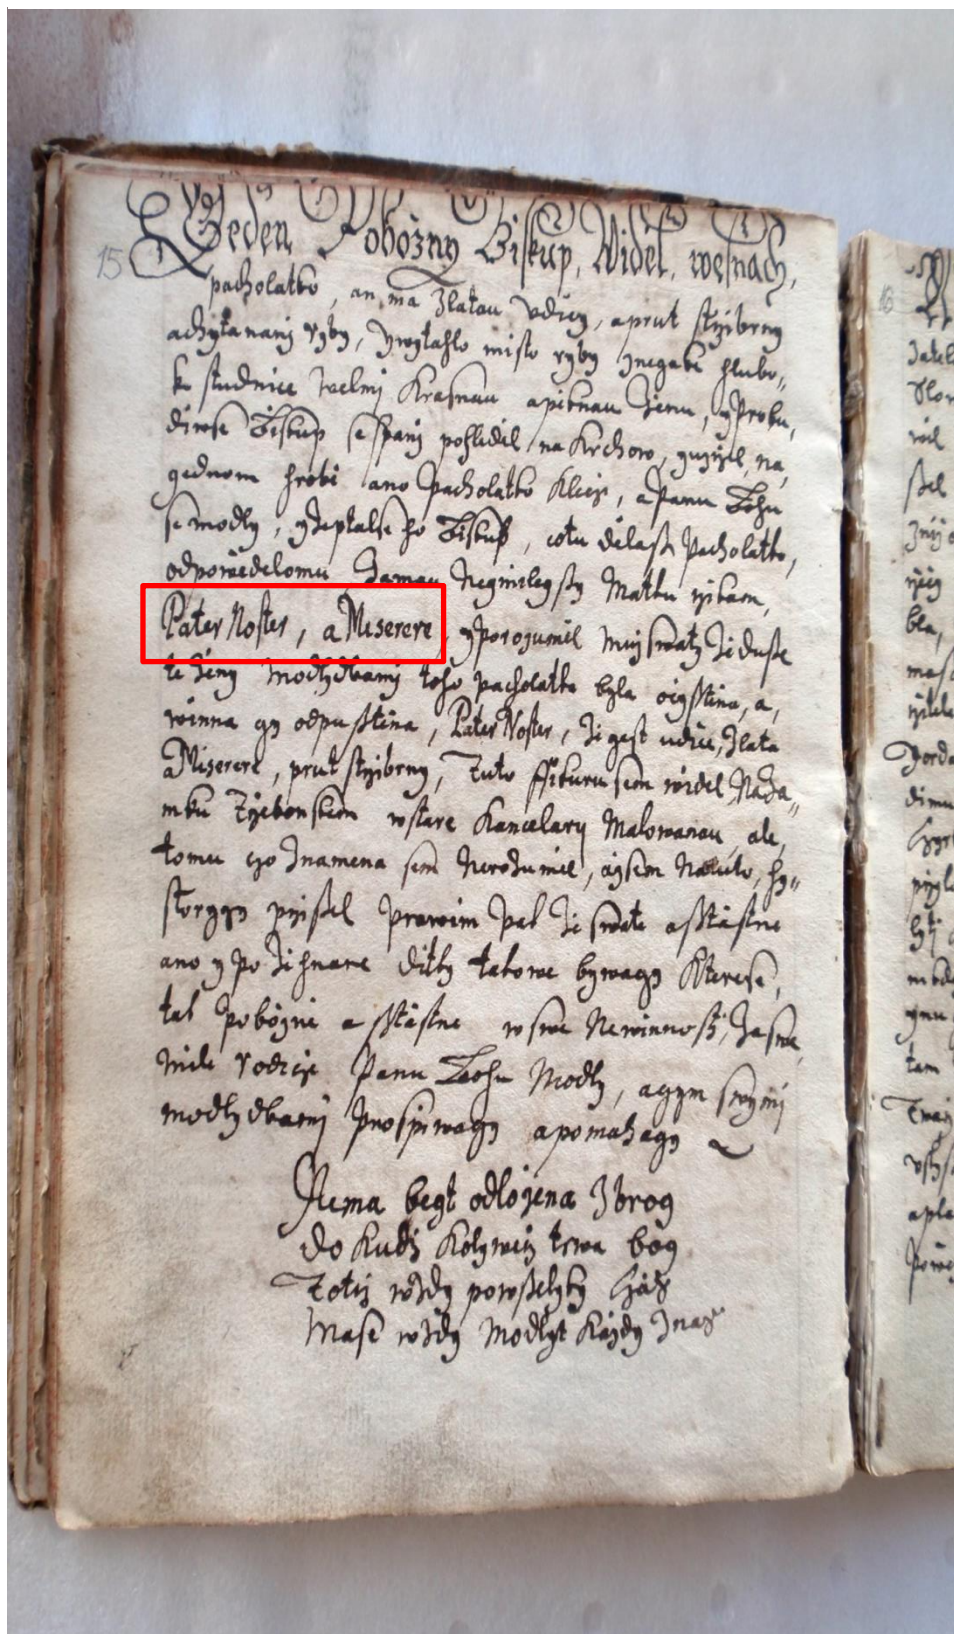 15
Geden Pobożny Biskup, Widel, wesnach,
pacholatko, an ma Zlatau Udicy, aprut stržibrny
achytanani Ryby, ywytahlo misto ryby znegake hlubo„
ke studnice welmi Krasnau apieknau Zienu, yProbu„
diwse Biskup se Spani pohledel na Krchow, yuzržel, na,
gednom hrobie ano Pacholatko kleczi, aPanu Bohu
se modly, yzeptalse ho Biskup, cotu dielass Pacholatko,
odpowiedelomu Zamau Neymileyssy Matku rzikam,
Pater Noster, a Miserere, yporozumiel muj swaty Zieduße
te Zieny modlydbami toho pacholatka byla ocyßtiena, a,
winna gy odpußtiena, Pater Noster, Zie gest udice, Zlata
a Miserere, prut stržibrny, Tuto ffikuru sem widel, NaZa„
mku Trzebonskem wstare Kancelarzy Malowanau, ale,
tomu czo Znamena sem Nerozumiel, až sem Natuto, hy„
storygy przißel Prawim Pak Zie swate aßtiastne
ano y pożiehnane ditky takowe bywagy Kterese,
tak pobożnie a ßtiastne wswe Newinnosti, Zaswe,
mile Rodicze Panu Bohu Modly, agym swymi
modlydbami Prospiwagy apomahagy
Nema beyt odlożena Zbrog
do kudż kolywiek trwa bog
Totiż wżdy powßelyky cżas
Mase wżdy Modlyt każdy Znas